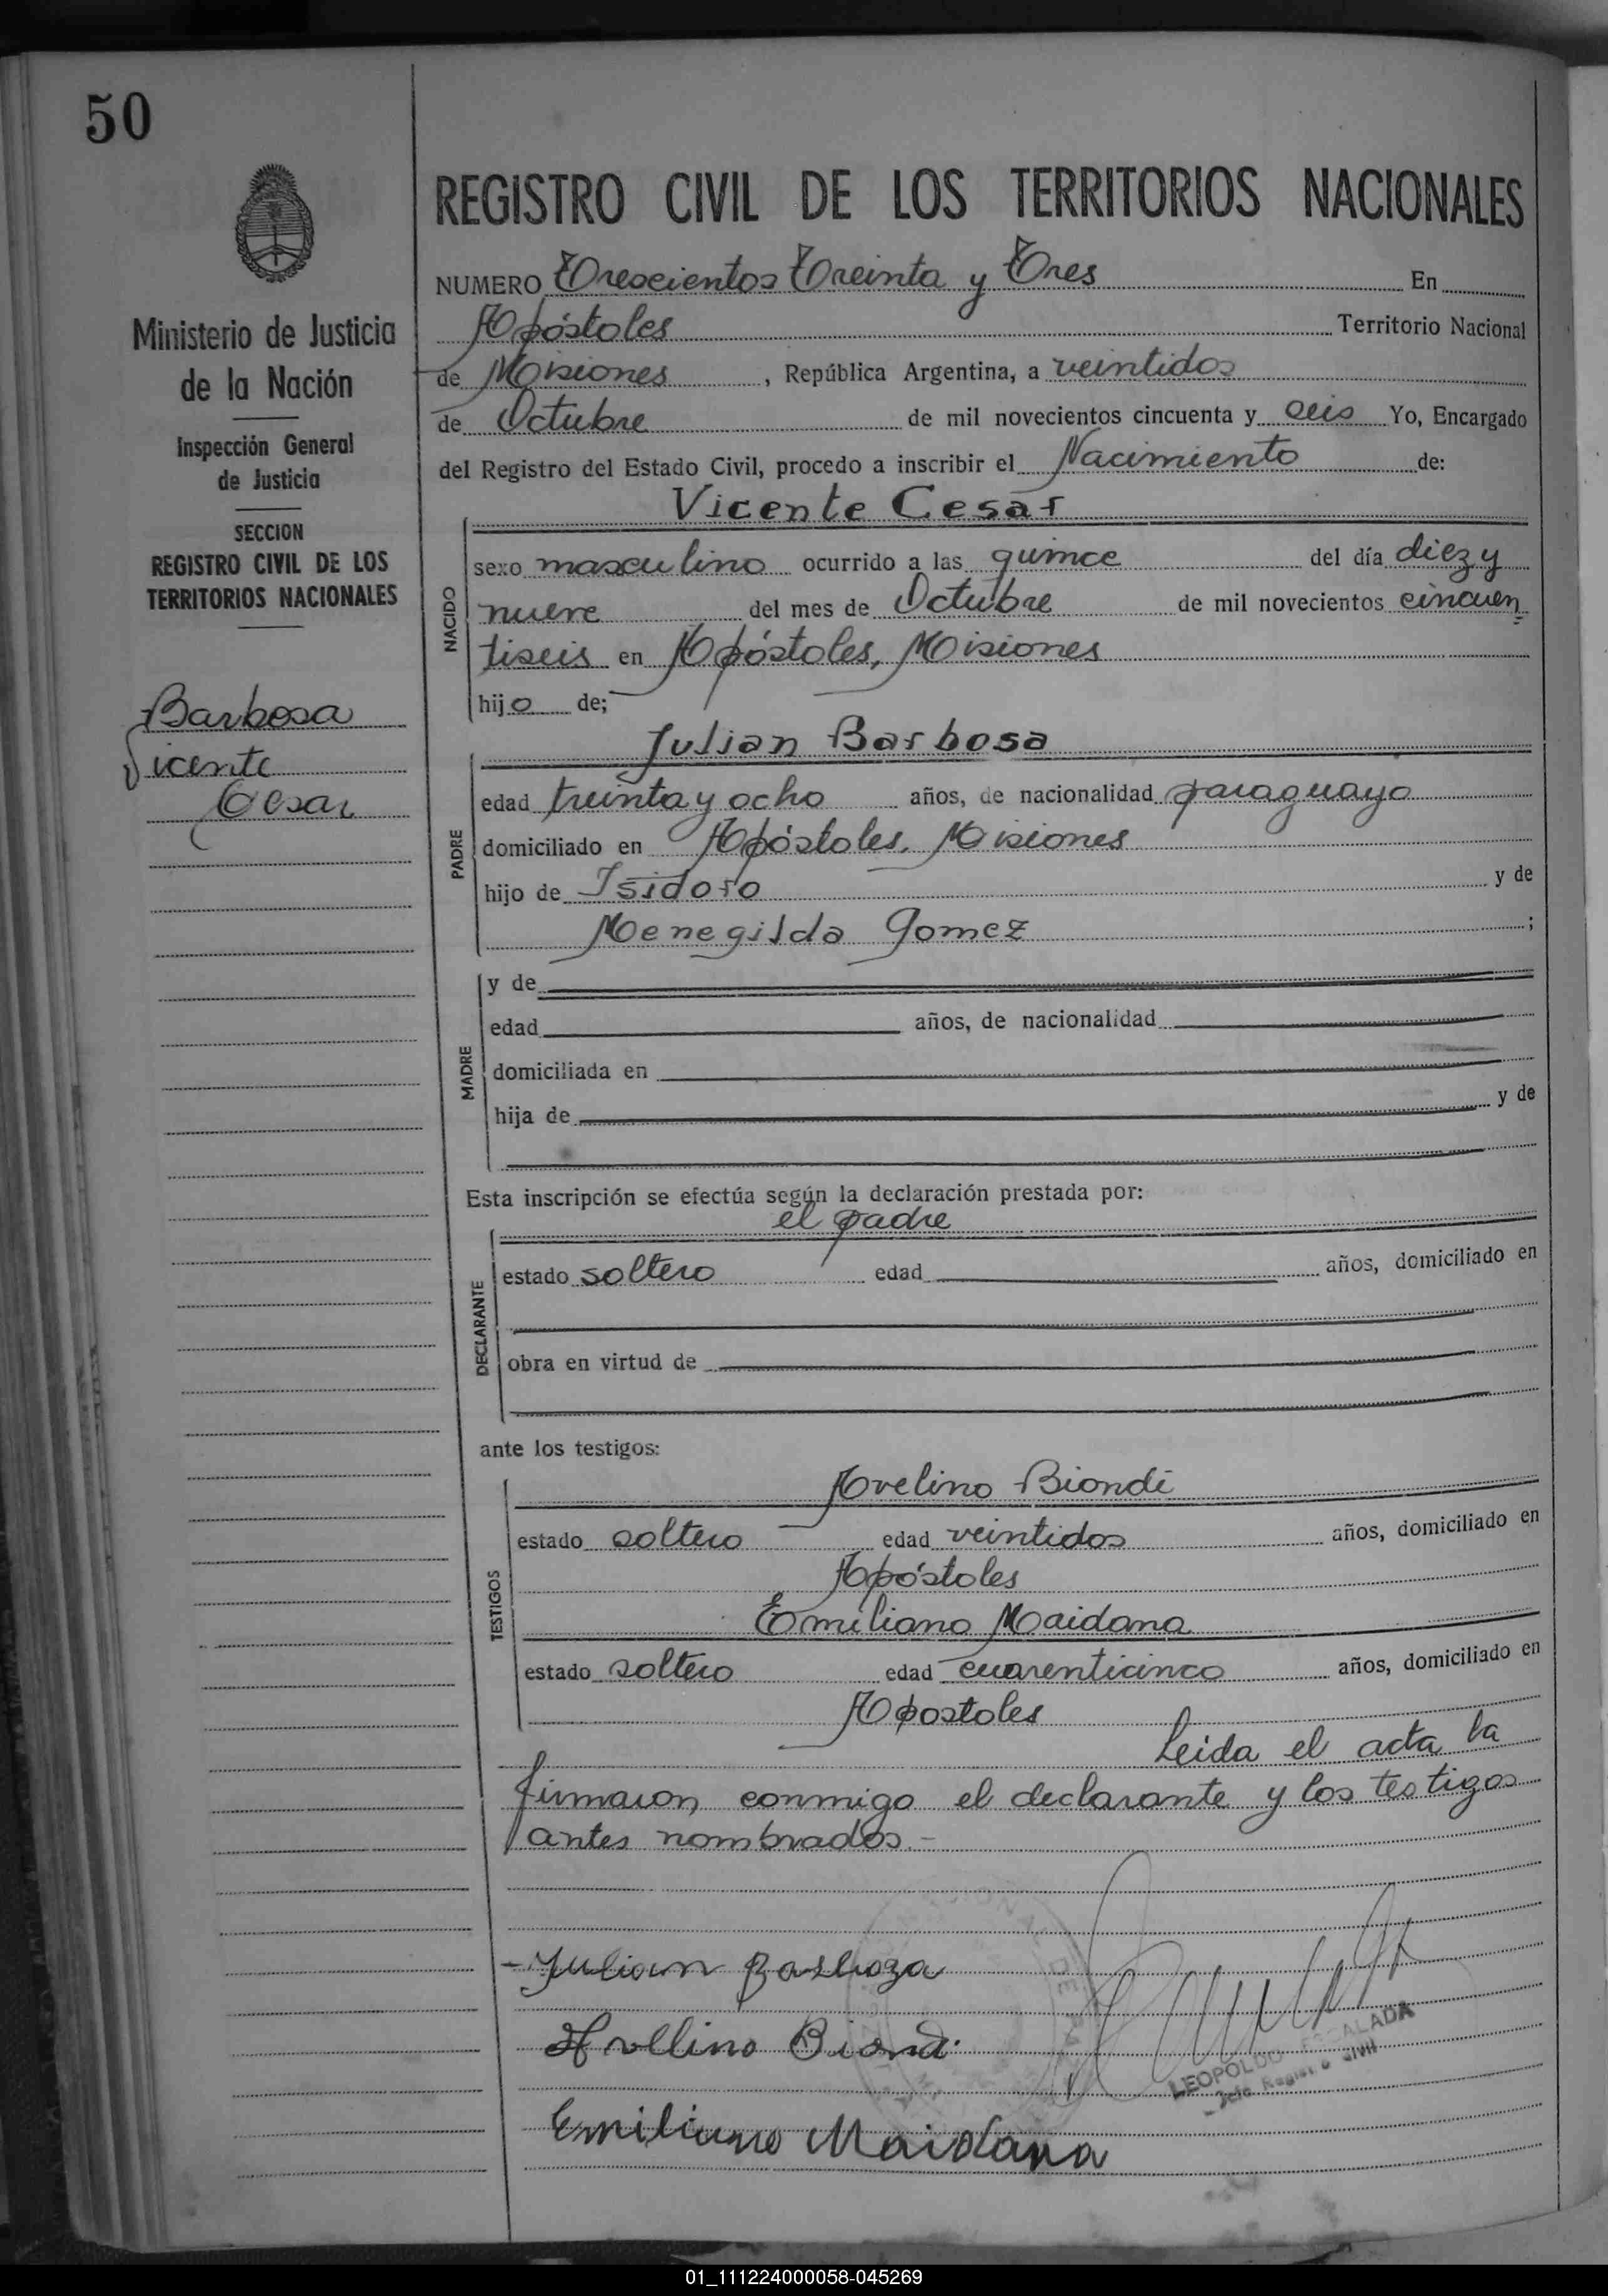 50
Ministerio de Justicia
de la Nación
Inspección General
de Justicia
SECCION
REGISTRO CIVIL DE LOS
TERRITORIOS NACIONALES
Barbosa
Vicente
Cesar
REGISTRO CIVIL DE LOS TERRITORIOS NACIONALES
NUMERO Trescientos Treinta y Tres En
Apóstoles Territorio Nacional
de Misiones, República Argentina, a veintidos
de Octubre de mil novecientos cincuenta y seis Yo, Encargado
del Registro del Estado Civil, procedo a inscribir el Nacimiento de:
Vicente Cesar
NACIDO
sexo masculino ocurrido a las quince del día diez y
nueve del mes de Octubre de mil novecientos cincuen
tiseis en Apóstoles, Misiones
hijo de;
Julian Barbosa
PADRE
edad treinta y ocho años, de nacionalidad paraguayo
domiciliado en Apóstoles, Misiones
hijo de Isidoro y de
Menegilda Gomez ;
MADRE
y de
edad años, de nacionalidad
domiciliada en
hija de y de
Esta inscripción se efectúa según la declaración prestada por:
el padre
DECLARANTE
estado soltero edad años, domiciliado en
obra en virtud de
ante los testigos:
TESTIGOS
Avelino Biondi
estado soltero edad veintidos años, domiciliado en
Apóstoles
Emiliano Maidana
estado soltero edad cuarenticinco años, domiciliado en
Apostoles
Leida el acta la
firmaron conmigo el declarante y los testigos
antes nombrados.-
Julian Barboza
Avelino Biondi
LEOPOLDO ESCALADA
Jefe Registro Civil
Emiliano Maidana
01_111224000058-045269